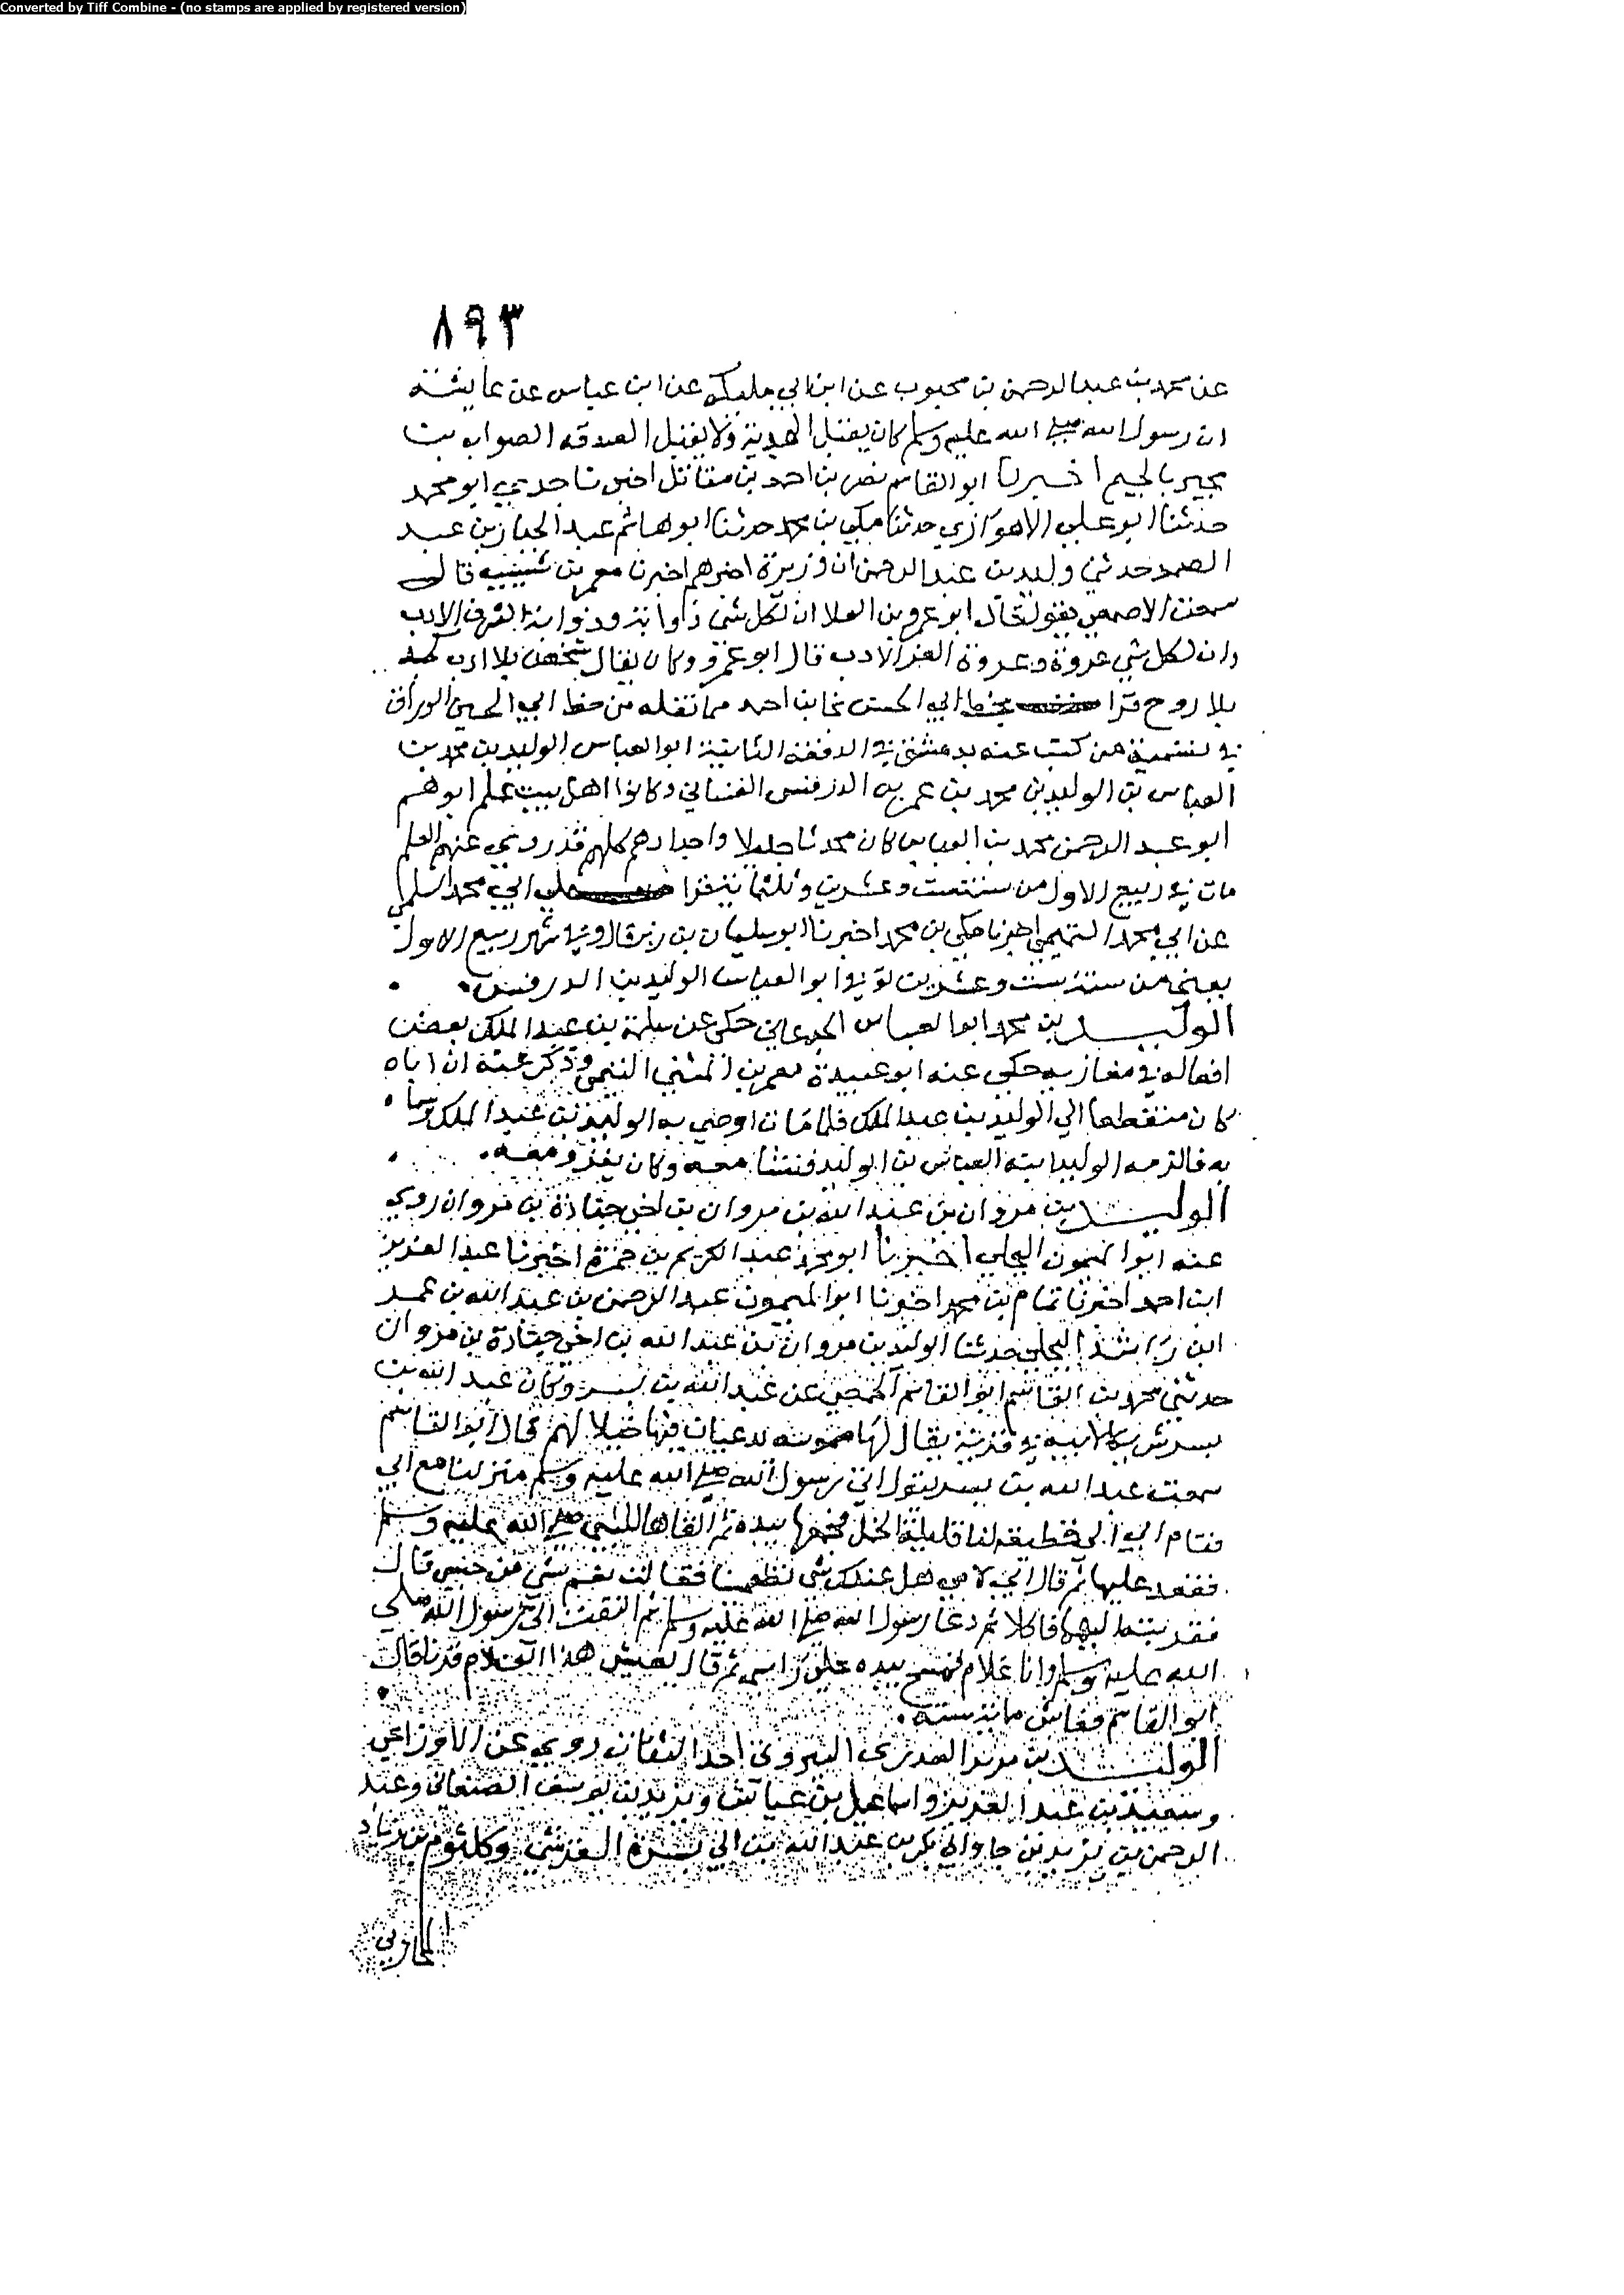 Converted by Tiff Combine - (no stamps are applied by registered version)
٨٩٣
عن محمد بن عبد الرحمن بن محبوب عن ابن ابي مليكة عن ابن عباس عن عايشة
ان رسول الله صلى الله عليه وسلم كان يقبل الهدية ولا يقبل الصدقه الصواب بن
مجير بالجيم اخبرنا ابو القاسم نصر بن احمد بن مقاتل اخبرنا جدي ابو محمد
حدثنا ابو علي الاهوازي حدثنا مكي بن محمد حدثنا ابو هاشم عبد الجبار بن عبد
الصمد حدثني وليد بن عبد الرحمن ان وزيرة اخبرهم اخبرنا معمر بن شبيب قال
سمعت الاصمعي يقول قال ابو عمرو بن العلا ان لكل شي ذوابة وذوابة الشرف الادب
وان لكل شي عروة وعروة العز الادب قال ابو عمرو وكان يقال شخص بلا ادب كجسد
بلا روح قرا بخط ابي الحسن نجا بن احمد مما نقله من خط ابي الحسين الوراق
في تسمية من كتب عنه بدمشق في الدفعة الثانية ابو العباس الوليد بن محمد بن
العباس بن الوليد بن محمد بن عمر بن الدرفس الغساني وكانوا اهل بيت علم ابوهم
ابو عبد الرحمن محمد بن العباس كان محدثا جليلا واجدادهم كلهم قد روي عنهم العلم
مات في ربيع الاول من سنة ست وعشرين وثلثماية قرا على ابي محمد السلمي
عن ابي محمد التميمي اخبرنا مكي بن محمد اخبرنا ابو سليمان بن زبر قال وفي شهر ربيع الاول
يعني من سنة ست وعشرين توفي ابو العباس الوليد بن الدرفس
الوليد بن محمد ابو العباس حكى عن مسلمة بن عبد الملك بعض
افعاله في مغازيه حكى عنه ابو عبيدة معمر بن المثنى التيمي وذكر عنه ان اباه
كان منقطعا الي الوليد بن عبد الملك فلما مات اوصي به الوليد بن عبد الملك
به فالزمه الوليد ابنه العباس بن الوليد فنشا معه وكان يغزو معه
الوليد بن مروان بن عبد الله بن مروان بن اخي جنادة بن مروان روى
عنه ابو الميمون البجلي اخبرنا ابو محمد عبد الكريم بن حمزة اخبرنا عبد العزيز
ابن احمد اخبرنا تمام بن محمد اخبرنا ابو الميمون عبد الرحمن بن عبد الله بن عمر
ابن راشد البجلي حدثنا الوليد بن مروان بن عبد الله بن اخي جنادة بن مروان
حدثني محمد بن القاسم ابو القاسم الحمصي عن عبد الله بن بسر وكان عبد الله بن
بسر شريكا لابيه في قرية يقال لها فيها خيلا لهم قال ابو القاسم
سمعت عبد الله بن بسر يقول اتى رسول الله صلى الله عليه وسلم منزلنا مع ابي
فقام ابي الى قطيفة لنا قليلة الخمل فجمعها بيده ثم القاها للنبي صلى الله عليه وسلم
فقعد عليها ثم قال ابي لامي هل عندك شي تطعمينا فقالت نعم شي من حيس قال
فقربته اليهما فاكلا ثم دعا رسول الله صلى الله عليه وسلم ثم التفت الي رسول الله صلى
الله عليه وسلم وانا غلام فمسح بيده على راسي ثم قال يعيش هذا الغلام قرنا قال
ابو القاسم فعاش ماية سنة
الوليد بن مزيد العذري البيروتي احد الثقات روى عن الاوزاعي
وسعيد بن عبد العزيز واسماعيل بن عياش ويزيد بن يوسف الصنعاني وعبد
الرحمن بن يزيد بن جا وابي بكر بن عبد الله بن ابي سبرة القرشي وكلثوم بن زياد
المحاربي